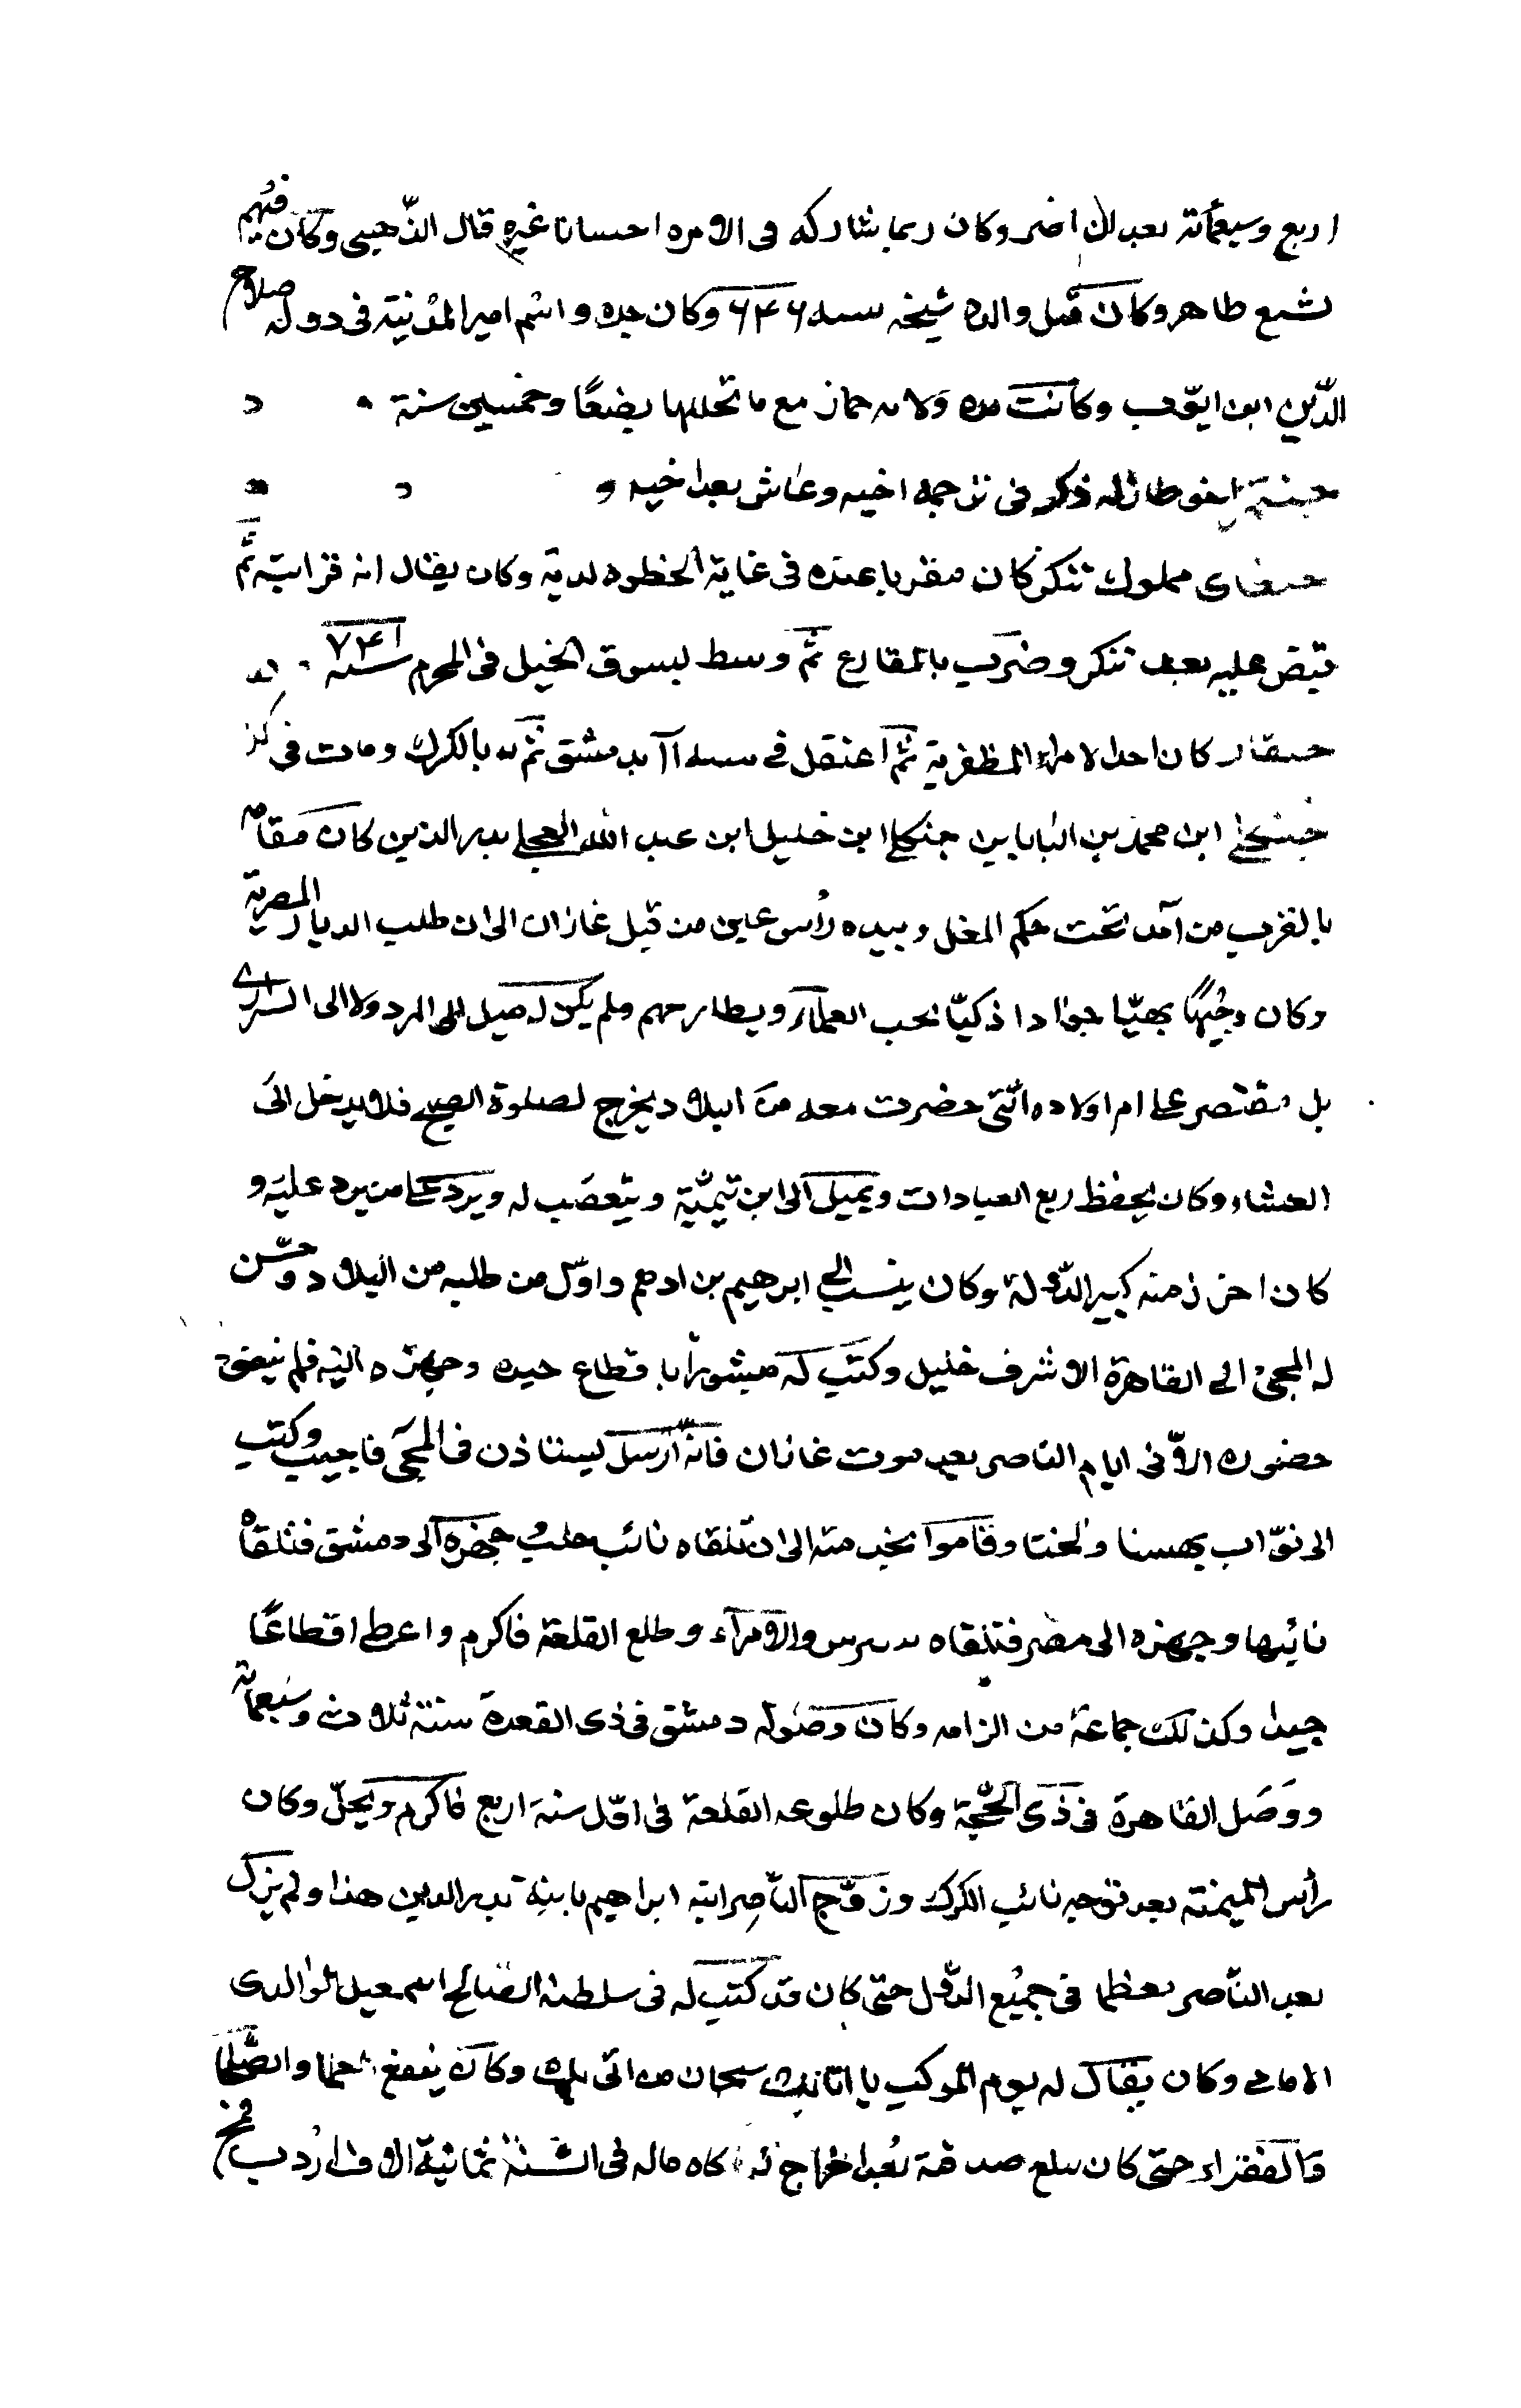 اربع وسبعمائة بعد ان اضر وكان ربما شاركه فى الامره احسانا غيره قال الذّهبى وكان فيهم
تشيع ظاهر وكان قتل والده شيخه سنه ۶۴۶ وكان جده واسم امير المدنيّة فى دولة صلاح
الدّين ابن ايوّب وكانت مده ولا مه حماز مع ما تخللها بضعًا وخمسين سنة
اخو طاز له ذكر فى ترجمه اخيه وعاش بعد اخيه و
مملوك تنكز كان مقربا عنده فى غاية الحظوه لديه وكان يقال انه قرابته ثمّ
قبض عليه بعد تنكز وضرب بالمقارع ثمّ وسط بسوق الخيل فى المحرم سنه ۷۴۱
كان احد الامراء المظفرية ثمّ اعتقل فى سنه بدمشق ثمّ بالكرك ومات فى
ابن محمد بن البابا بن جنكلى ابن خليل ابن عبد الله العجلى بدر الدين كان مقامه
بالقرب من آمد تحت حكم المغل وبيده رأس عين من قبل غازان الى ان طلب الديار المصرية
وكان وجيهًا بهيّا جوادا ذكيّا يحب العلماء ويطارحهم ولم يكن له ميل الى المرد ولا الى السرارى
بل مقتصر على ام اولاده الّتى حضرت معه من البلاد يخرج لصلوة الصبح فلا يدخل الى
العشاء وكان يحفظ ربع العبادات ويميل الى ابن تيميّة ويتعصّب له ويرد على من يرد عليه و
كان اخر زمنه كبير الدّولة وكان ينسب الى ابرهيم بن ادهم واوّل من طلبه من البلاد وحسّن
له المجئ الى القاهرة الاشرف خليل وكتب له منشورا باقطاع جيده وجهزه اليه فلم يتفق
حضوره الاّ فى ايام الناصر بعد موت غازان فانّه ارسل يستاذن فى المجئ فاجيب وكتب
الى نوّاب بهسنا وقاموا بخدمته الى ان تلقاه نائب حلب جهزه الى دمشق فتلقاه
نائبها وجهزه الى مصر فتلقاه بيبرس والامرآء وطلع القلعة فاكرم واعطى اقطاعًا
جيدا وكذلك جماعة من الزامه وكان وصوله دمشق فى ذى القعدة سنة ثلاث وسبعمائة
ووصل القاهرة فى ذى الحجّة وكان طلوعه القلعة فى اوّل سنة اربع فاكرم وبجّل وكان
رأس الميمنة بعد توجه نائب الكرك وزوّج النّاصر ابنه ابراهيم بابنة بدر الدين هذا ولم يزل
بعد النّاصر معظما فى جميع الدّول حتى كان قد كتب له فى سلطنة الصّالح اسمعيل الوالدى
الامامى وكان يقال له يوم الموكب يا اتابك سبحان من اتى بك وكان ينفع العلما والصّلحا
والفقراء حتى كان يبلغ صدقة بعد اخراج زكاه ماله فى السّنة ثمانية الاف اردب قمح